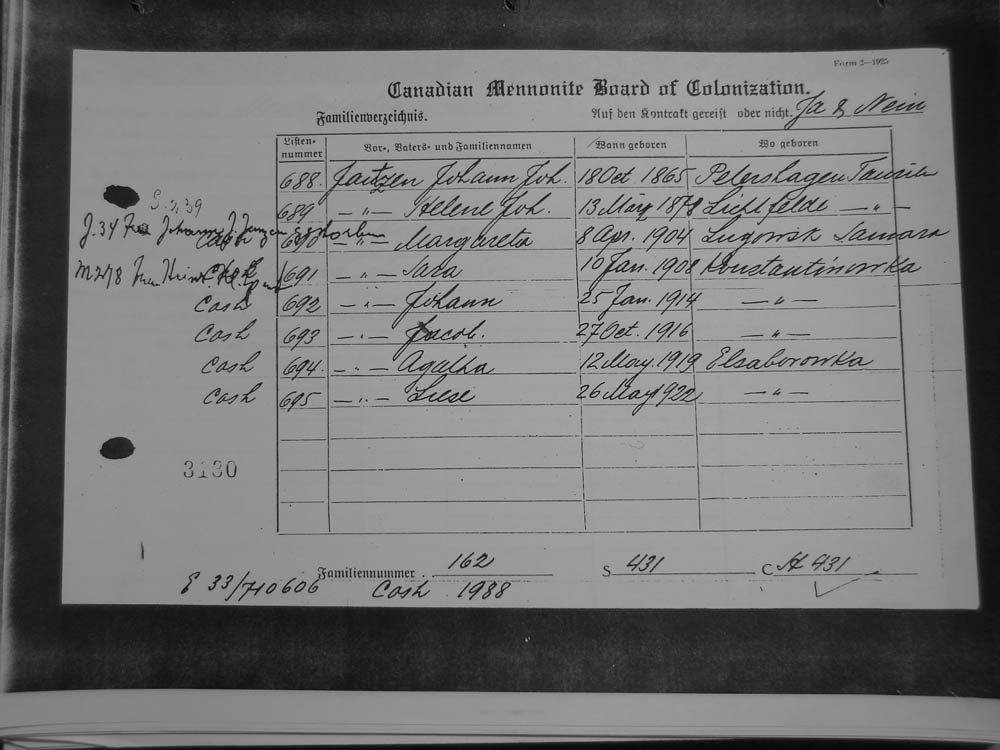 Form 2—192
Canadian Mennonite Board of Colonization.
Familienverzeichnis. Auf den Kontrakt gereist oder nicht. Ja & Nein
Listen-nummer Vor-, Vaters- und Familiennamen Wann geboren Wo geboren
688. Jantzen Johann Joh. 18 Oct 1865 Petershagen Taurien
689 —"— Helene Joh. 13 März 1878 Lichtfelde —"—
J. 34 Frau Johann J. Janzen gestorben
Cash 690 —"— Margareta 8 Apr. 1904 Lugowsk Samara
M 278 Frau 691 —"— Sara 10 Jan. 1908 Konstantinowka
Cash 692 —"— Johann 25 Jan. 1914 —"—
Cash 693 —"— Jacob. 27 Oct. 1916 —"—
Cash 694. —"— Agatha 12 May. 1919 Elsaborowka
Cash 695 —"— Liese 26 May 1922 —"—
3130
Familiennummer 162 S 431 C A 431
E 33/710606 Cash 1988